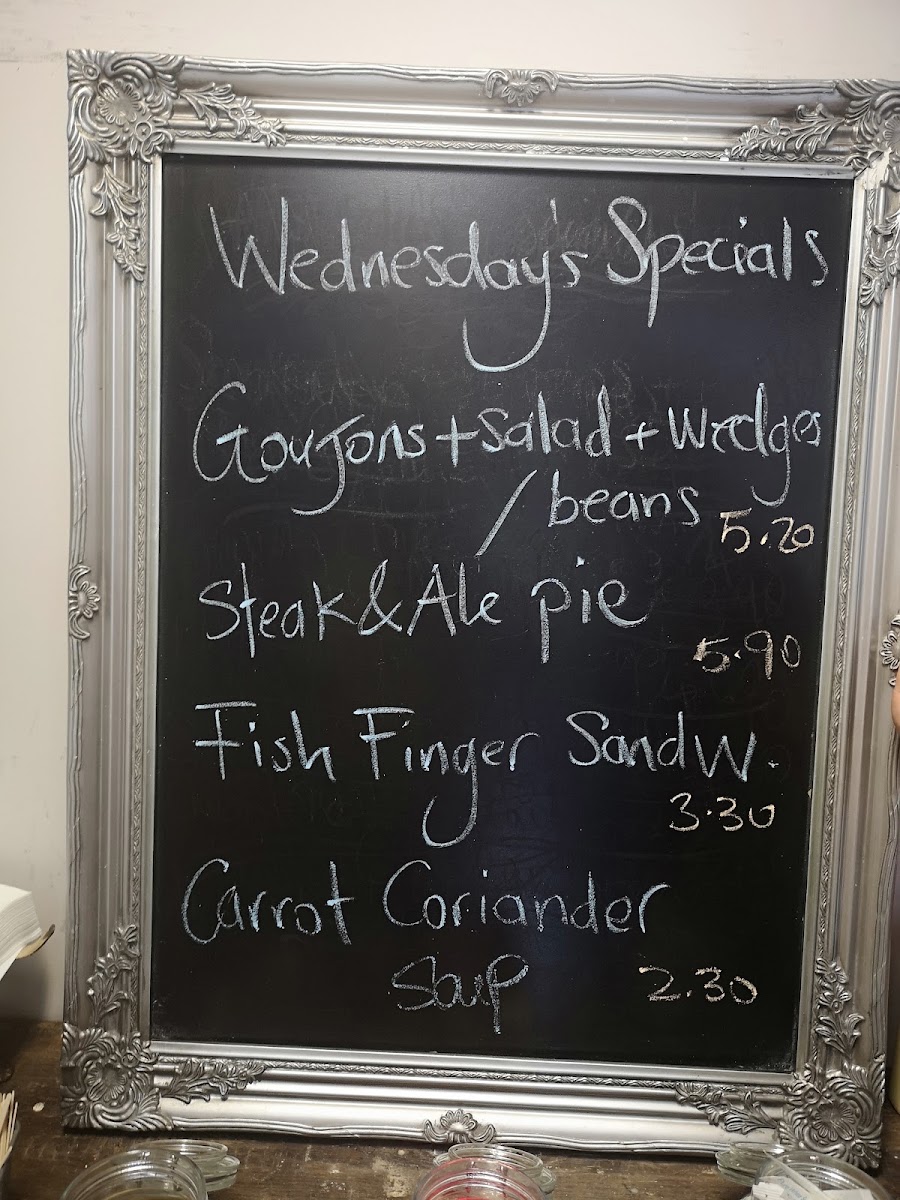 Wednesday's Specials
Goujons + salad + wedges
/ beans 5.20
Steak & Ale pie
5.90
Fish Finger Sandw.
3.30
Carrot Coriander
Soup 2.30